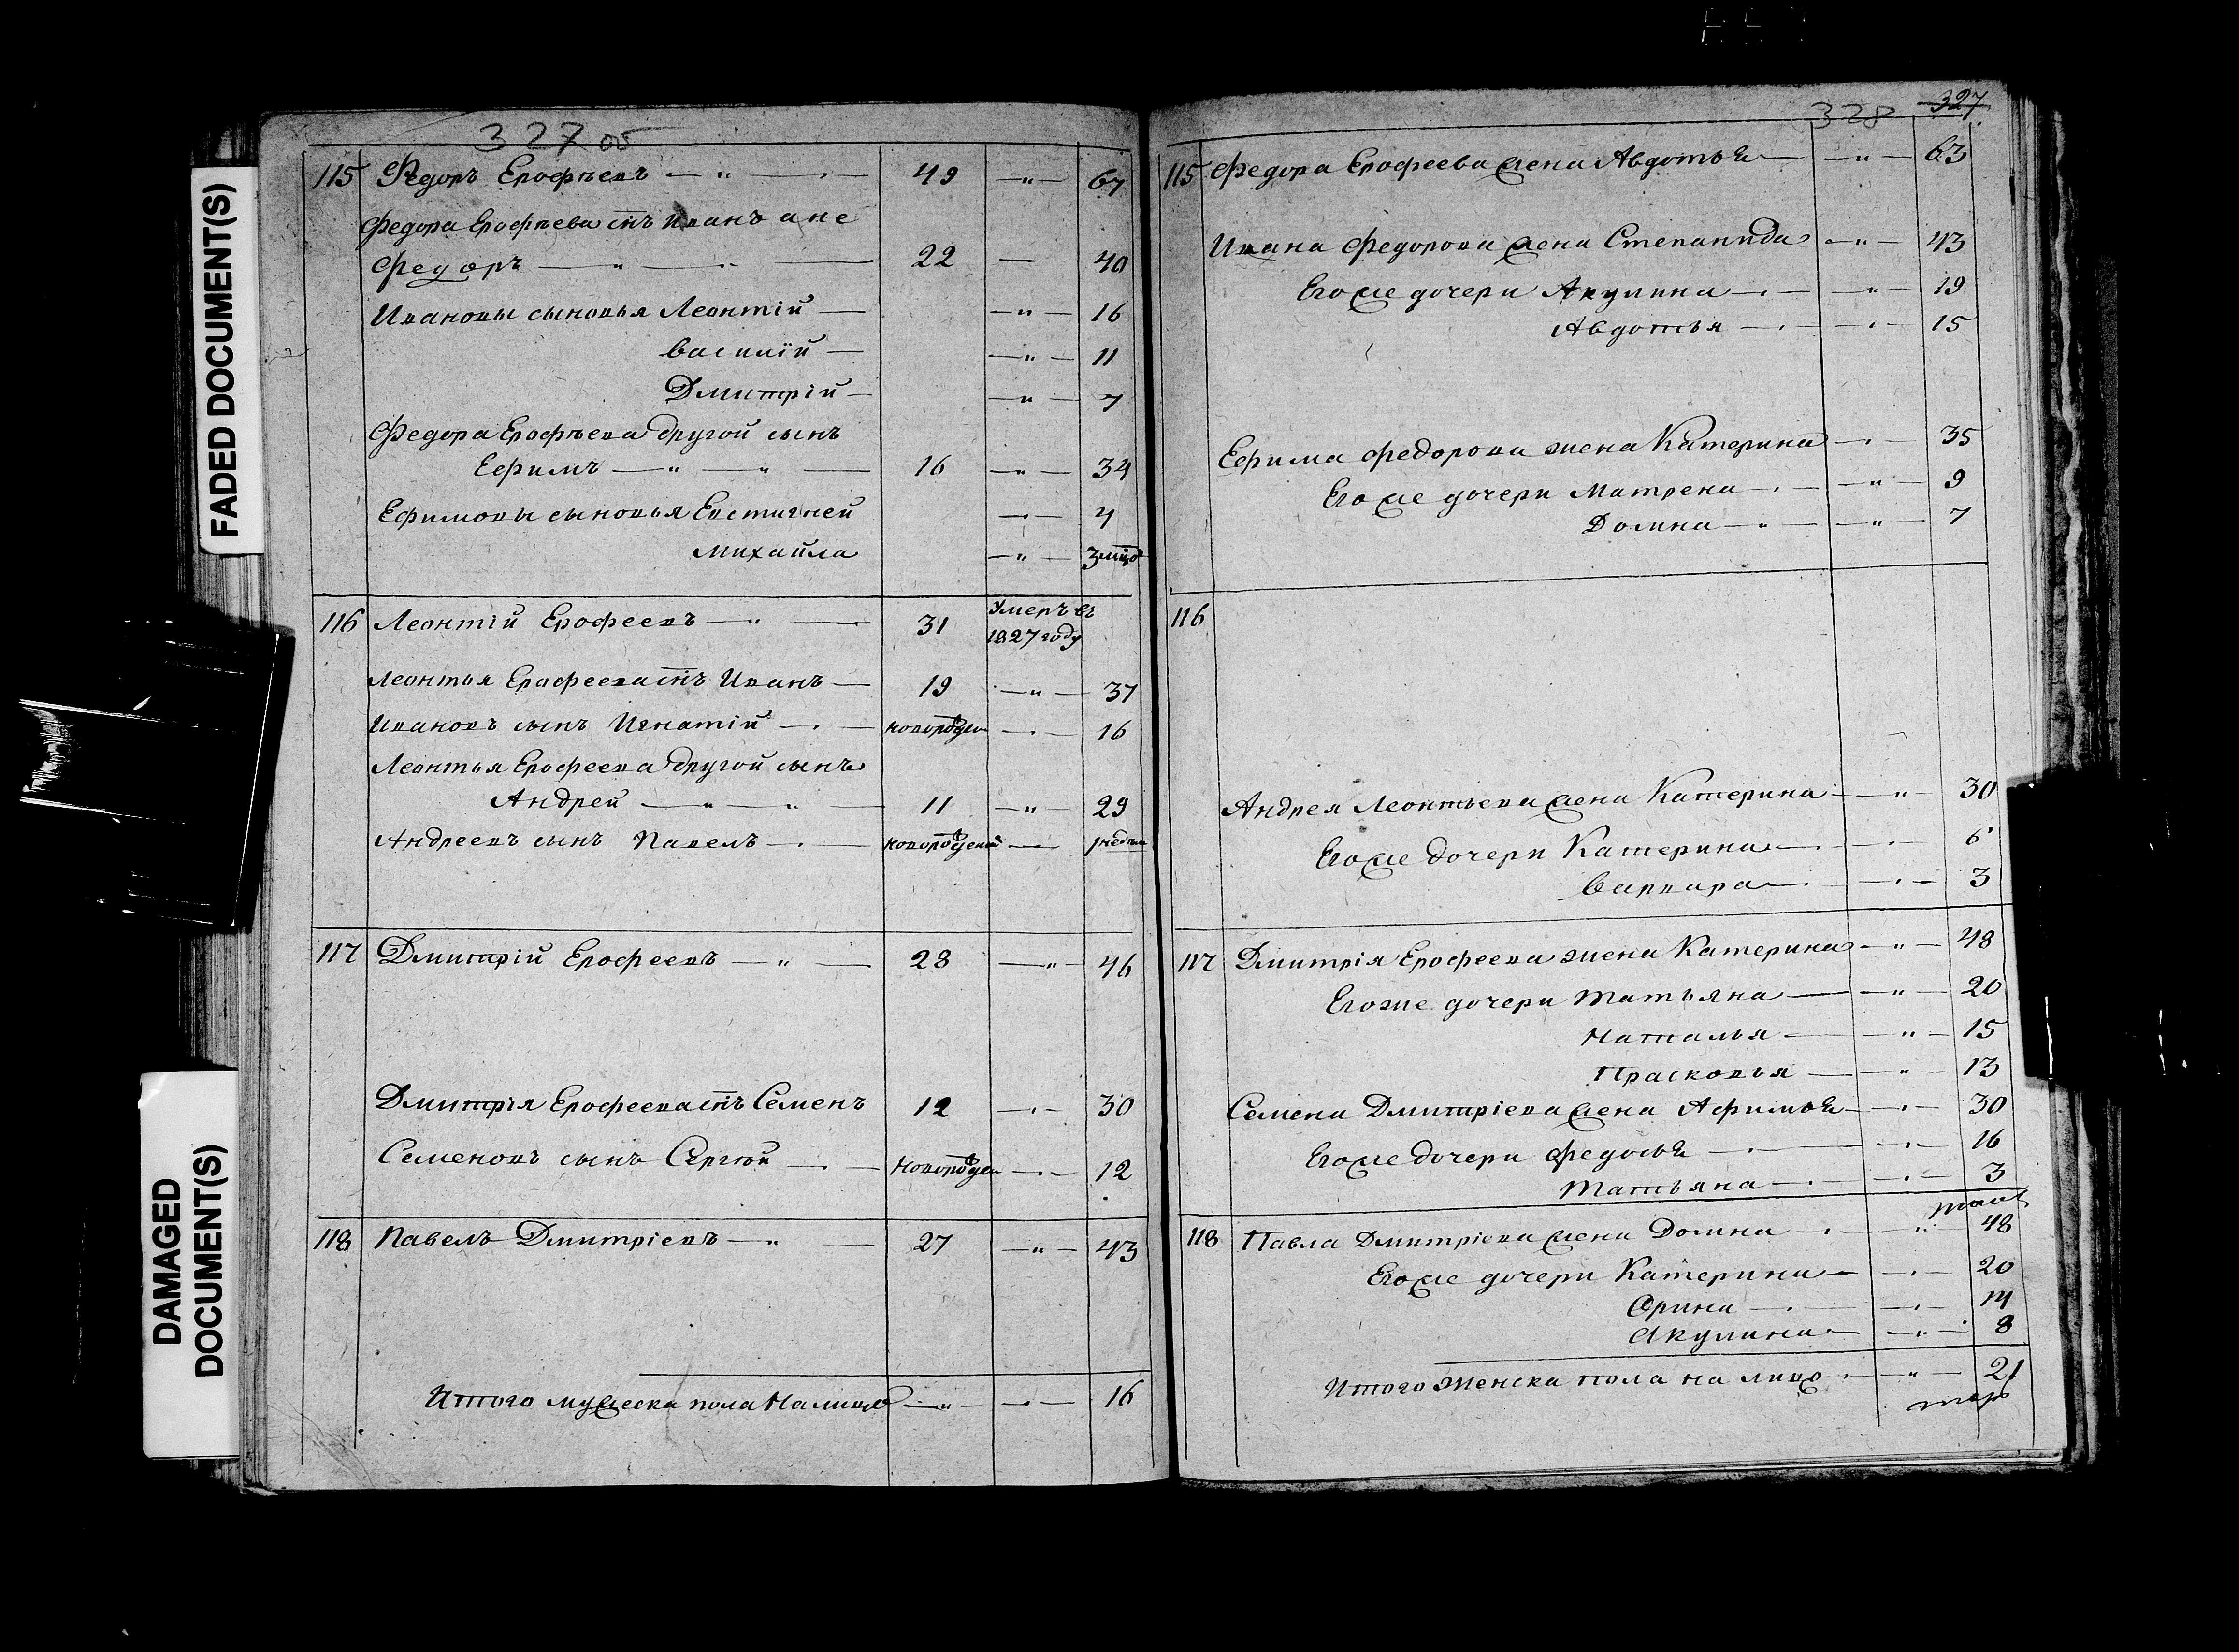 327 об
115 Федоръ Ерофѣевъ 49 67
Федора Ерофѣева снъ Иванъ а не
Федоръ 22 40
Ивановы сыновья Леонтій 16
Василій 11
Дмитрій 7
Федора Ерофѣева другой сынъ
Ефимъ 16 34
Ефимовы сыновья Евстигней 4
Михайла 3 мцо
116 Леонтій Ерофеевъ 31 Умеръ въ 1827 году
Леонтья Ерофеева снъ Иванъ 19 37
Ивановъ сынъ Игнатій новорожден 16
Леонтья Ерофеева другой сынъ
Андрей 11 29
Андреевъ сынъ Павелъ новорожденой 1 недели
117 Дмитрій Ерофеевъ 28 46
Дмитрія Ерофеева снъ Семенъ 12 30
Семеновъ сынъ Сергѣй новорожден 12
118 Павелъ Дмитріевъ 27 43
Итого мужеска пола налицо 16
328 327
115 Федора Ерофеева жена Авдотья 63
Ивана Федорова жена Степанида 43
Его же дочери Акулина 19
Авдотья 15
Ефима Федорова жена Катерина 35
Его же дочери Матрена 9
Домна 7
116
Андрея Леонтьева жена Катерина 30
Его же дочери Катерина 6
Варвара 3
117 Дмитрія Ерофеева жена Катерина 48
Его же дочери Татьяна 20
Наталья 15
Прасковья 13
Семена Дмитріева жена Афимья 30
Его же дочери Федосья 16
Татьяна 3
118 Павла Дмитріева жена Домна 48
Его же дочери Катерина 20
Орина 14
Акулина 8
Итого женска пола на лицо 21
FADED DOCUMENT(S)
DAMAGED
DOCUMENT(S)